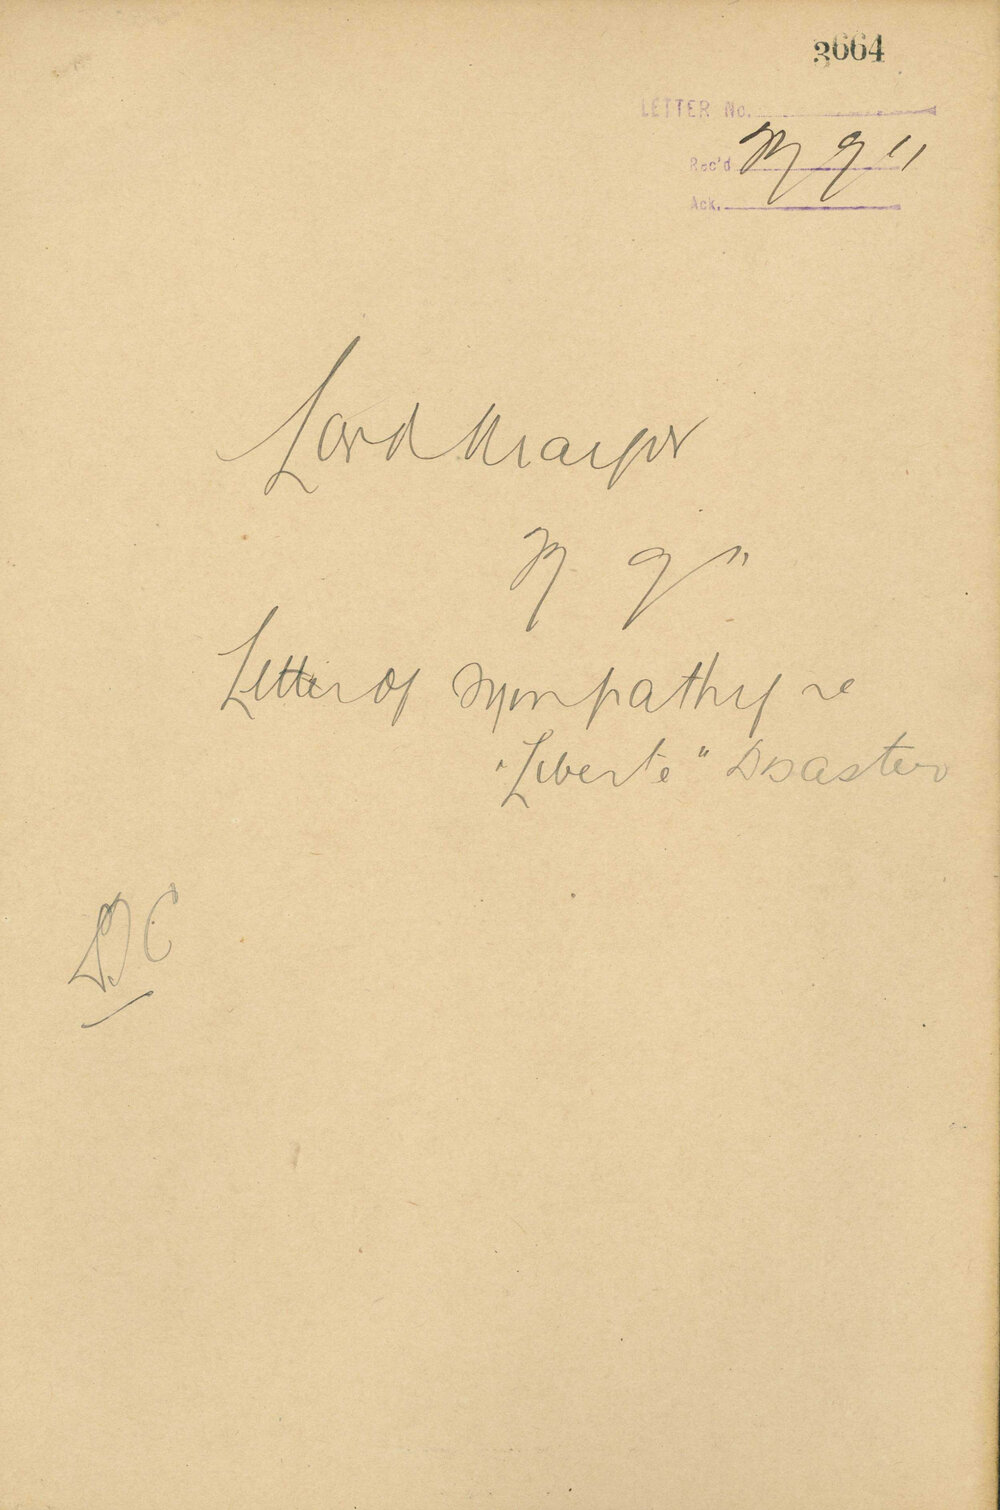 3664
LETTER No.
Rec'd 27 9 11
Ack.
Lord Mayor
27 9 11
Letter of sympathy re
"Liberté" Disaster